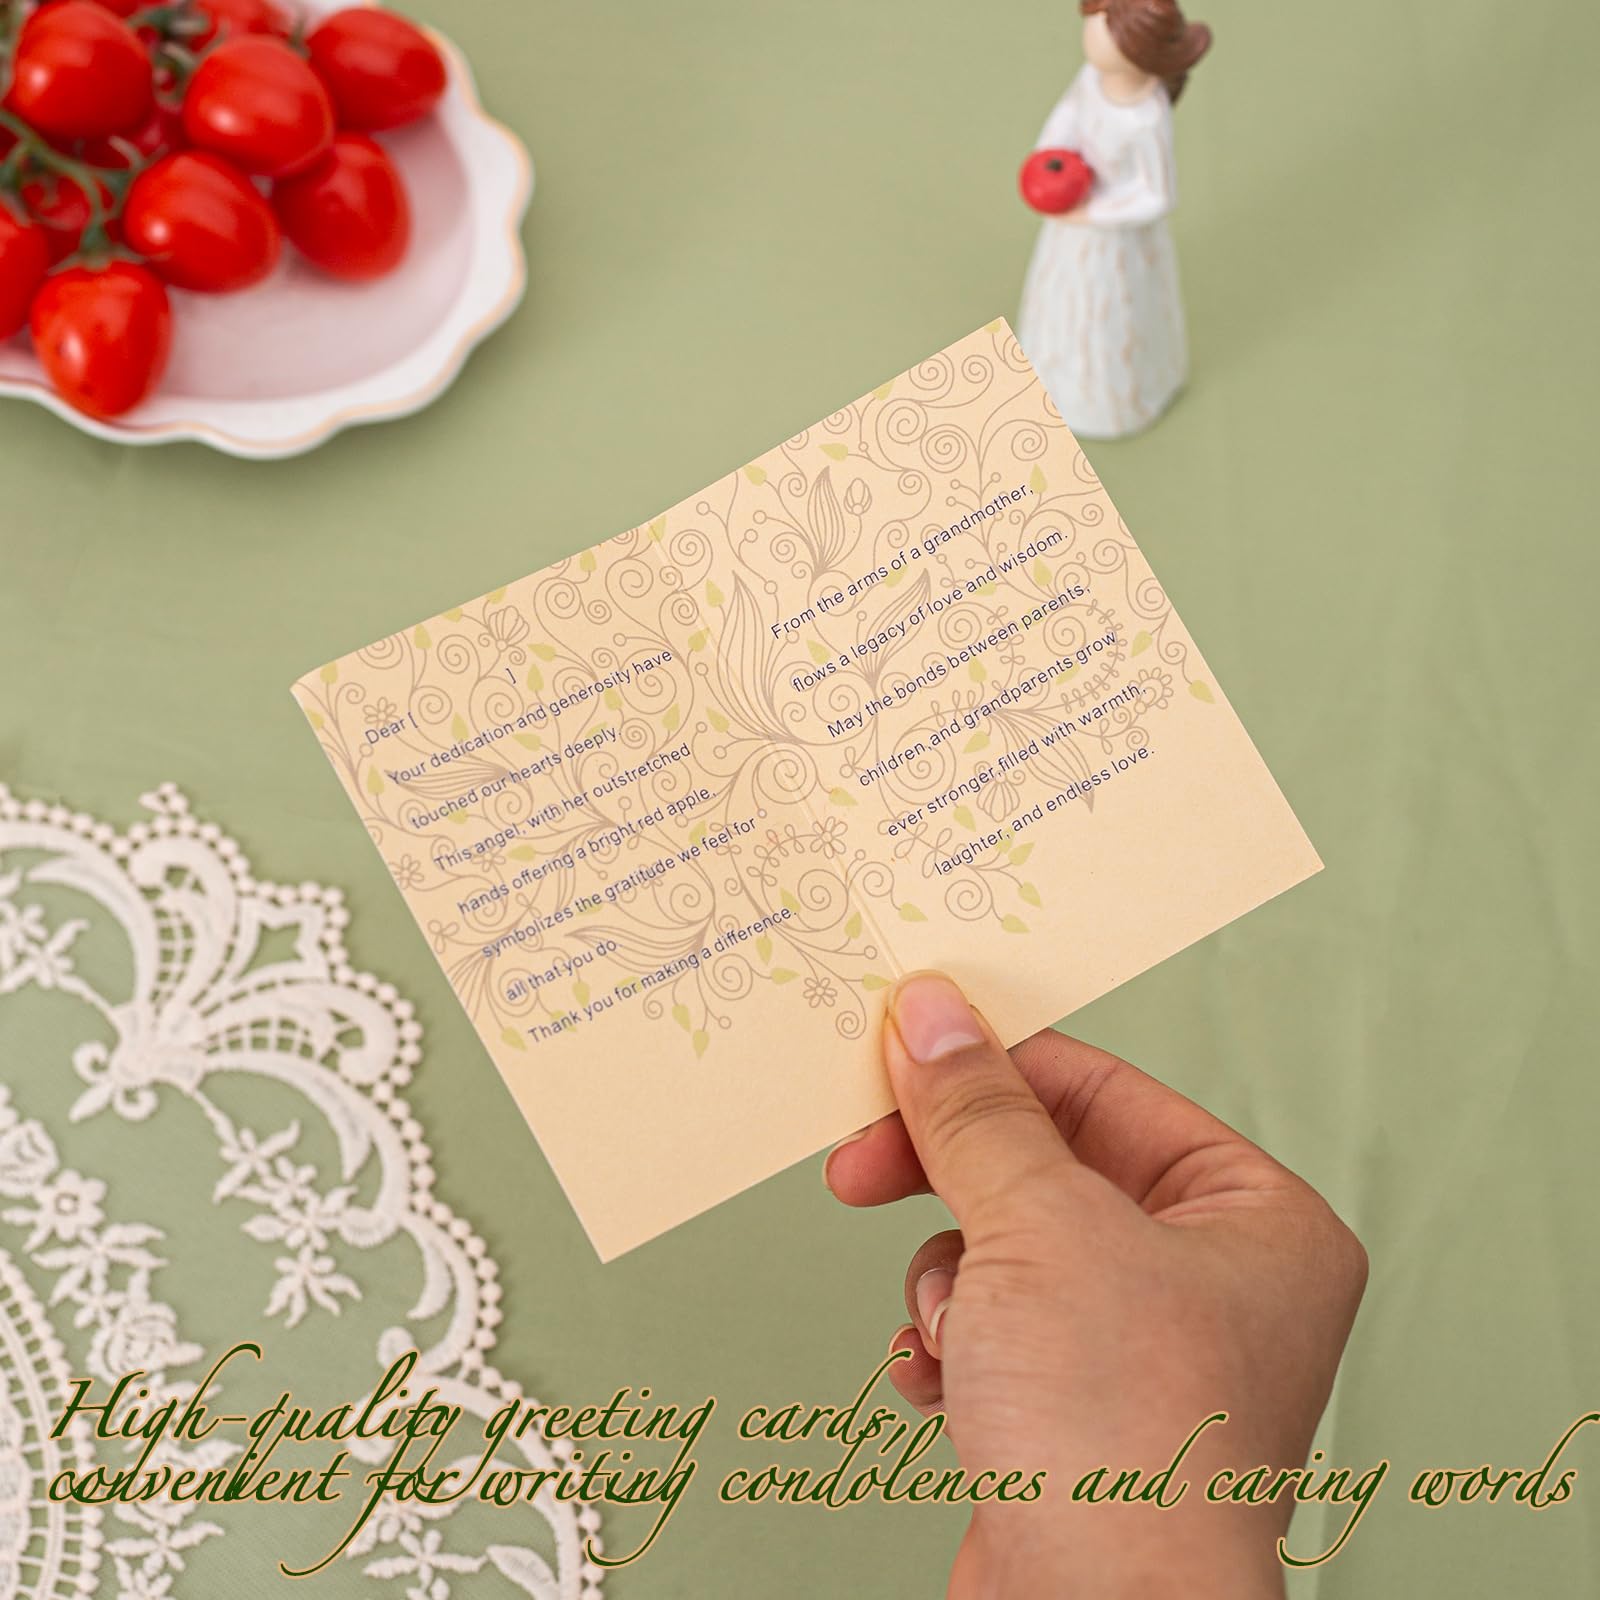 Dear [ ]
Your dedication and generosity have
touched our hearts deeply.
This angel, with her outstretched
hands offering a bright red apple,
symbolizes the gratitude we feel for
all that you do.
Thank you for making a difference.
From the arms of a grandmother,
flows a legacy of love and wisdom.
May the bonds between parents,
children,and grandparents grow
ever stronger,filled with warmth,
laughter, and endless love.
High-quality greeting cards,
convenient for writing condolences and caring words